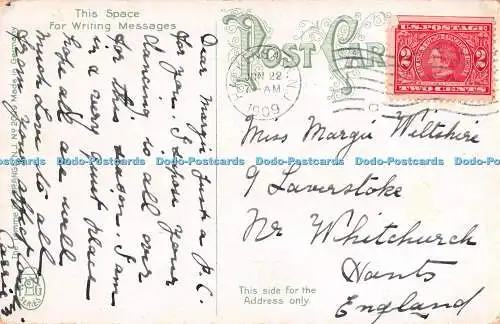 This Space
For Writing Messages
POST CARD
JUN 22
AM
1909
U.S. POSTAGE
2 2
TWO CENTS
Dear Margie Just a P.C.
for you. I hope your
Dancing is all over
for this season. I am
in a very quiet place
hope all are well
Much Love to all
from
Miss Margie Wiltshire
9 Laverstoke
Nr Whitchurch
Hants
England
This side for the
Address only.
Made in Germany
SERIES
Dodo-Postcards Dodo-Postcards Dodo-Postcards Dodo-Postcards Dodo-Postcards